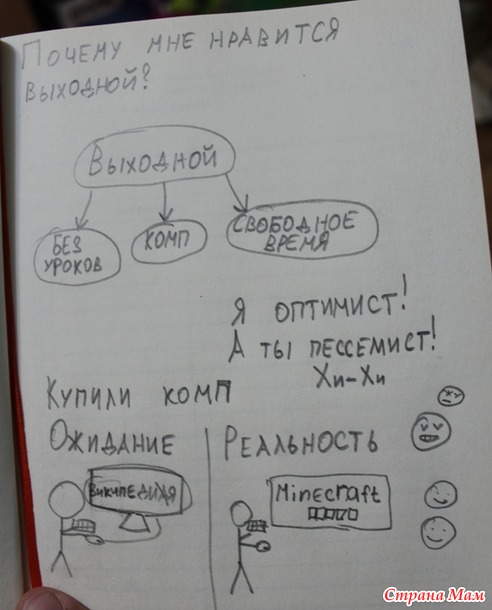 Почему мне нравится
выходной?
Выходной
БЕЗ
УРОКОВ
КОМП
СВОБОДНОЕ
ВРЕМЯ
Я ОПТИМИСТ!
А ТЫ ПЕССЕМИСТ!
Хи-Хи
Купили комп
Ожидание
Реальность
Википедия
Minecraft
Страна Мам